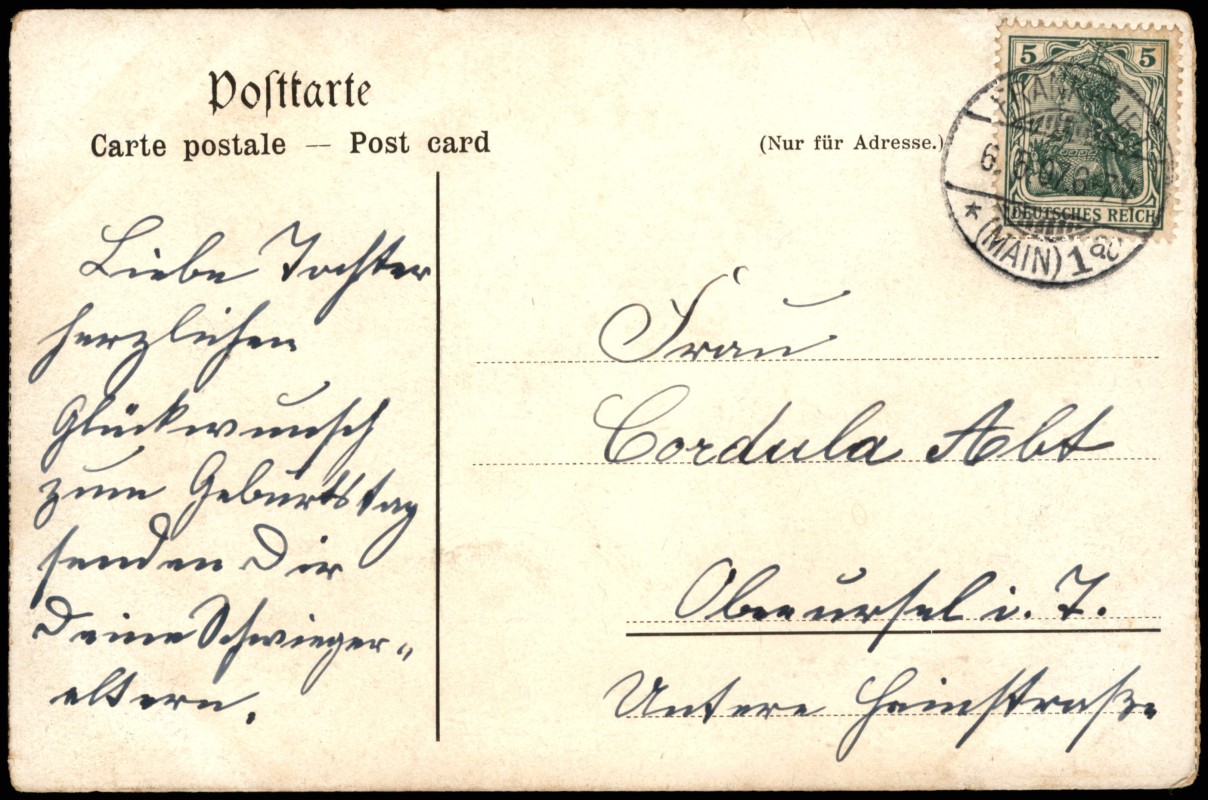 Postkarte
Carte postale — Post card
(Nur für Adresse.)
5 5
DEUTSCHES REICH
6. 6. 07. 6-7 V
* (MAIN) 1
Liebe Tochter
herzlichen
Glückwunsch
zum Geburtstag
senden Dir
Deine Schwieger-
eltern.
Frau
Cordula Abt
Oberursel i. T.
Untere Hainstraße